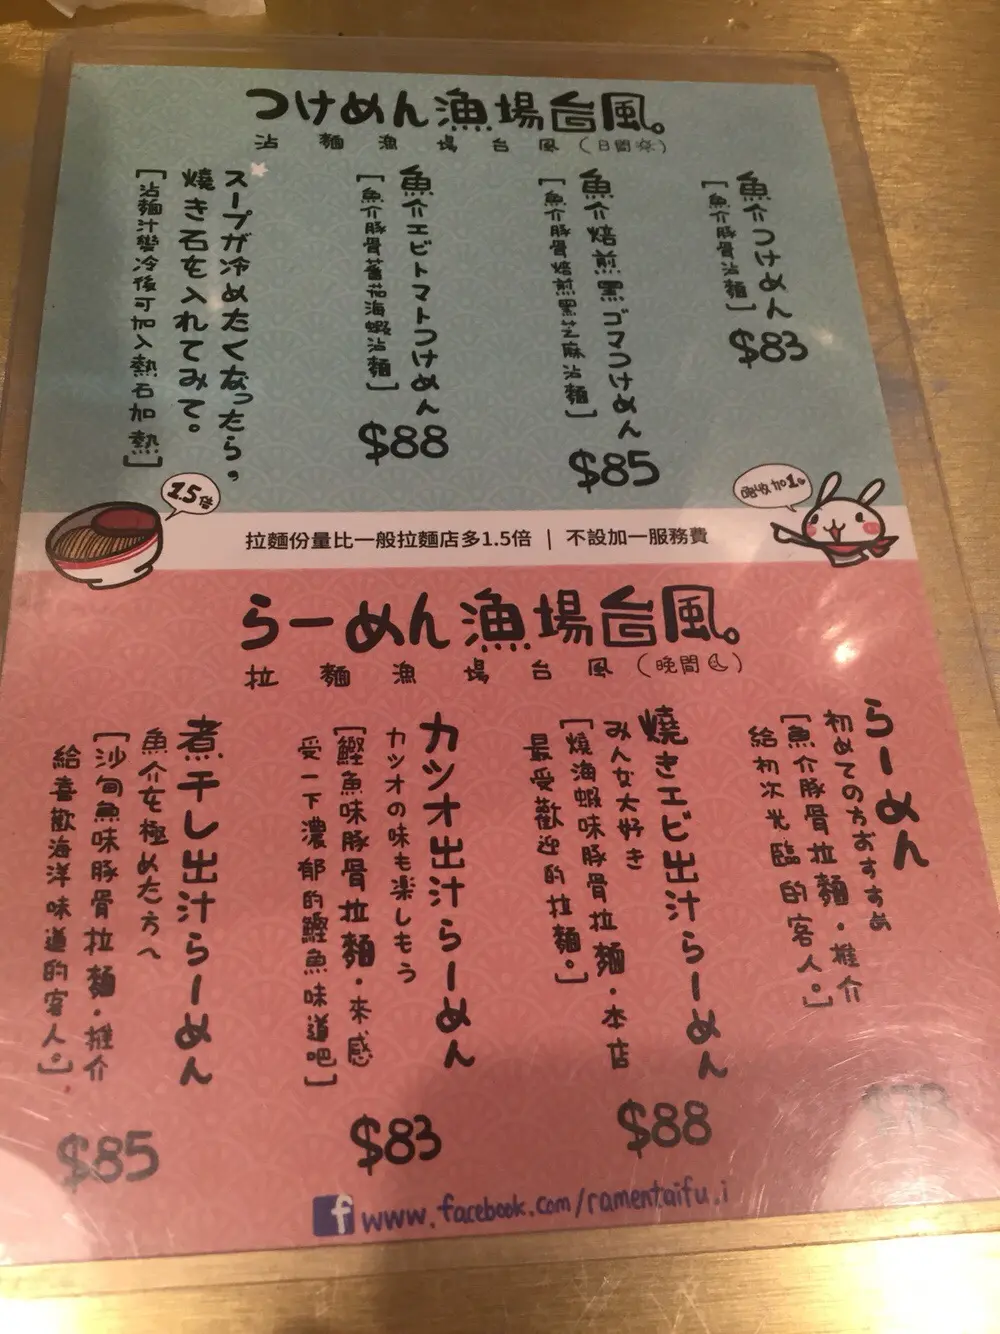 つけめん漁場台風。
沾麵漁場台風(日間)
魚介つけめん
[魚介豚骨沾麵]
$83
魚介焙煎黑ゴマつけめん
[魚介豚骨焙煎黑芝麻沾麵]
$85
魚介エビトマトつけめん
[魚介豚骨蕃茄海蝦沾麵]
$88
スープが冷めたくなったら,
燒き石を入れてみて。
[沾麵汁變冷後可加入熱石加熱]
1.5倍
唔收加1。
拉麵份量比一般拉麵店多1.5倍 | 不設加一服務費
らーめん漁場台風。
拉麵漁場台風(晚間)
らーめん
初めての方おすすめ
[魚介豚骨拉麵・推介
給初次光臨的客人。]
燒きエビ出汁らーめん
みんな大好き
[燒海蝦味豚骨拉麵・本店
最受歡迎的拉麵。]
$88
カツオ出汁らーめん
カツオの味も楽しもう
[鰹魚味豚骨拉麵・來感
受一下濃郁的鰹魚味道吧]
$83
煮干し出汁らーめん
魚介を極めた方へ
[沙甸魚味豚骨拉麵・推介
給喜歡海洋味道的客人。]
$85
f www.facebook.com/ramentaifu.i